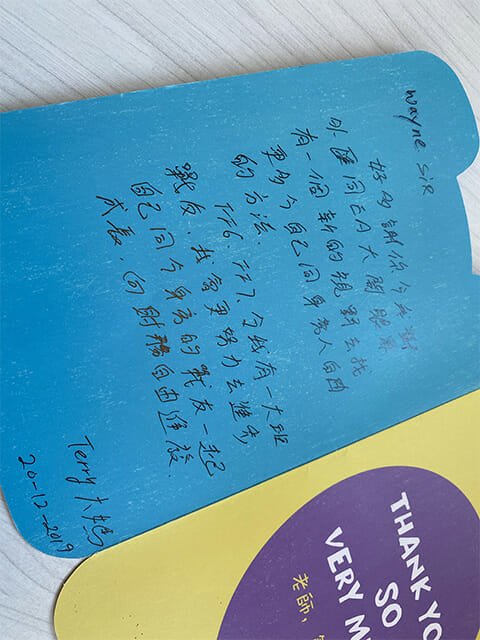 Wayne SiR
好多謝你令我對
外匯同EA大開眼界
有一個新的視野去找
更多令自己同身旁人自由
的方法.
TF6, TF7 令我有一大班
戰友, 我會更努力去進步
自己同令身旁的戰友一起
成長, 向財務自由進發.
Terry
20-12-2019
THANK YO
SO
VERY M
老師,